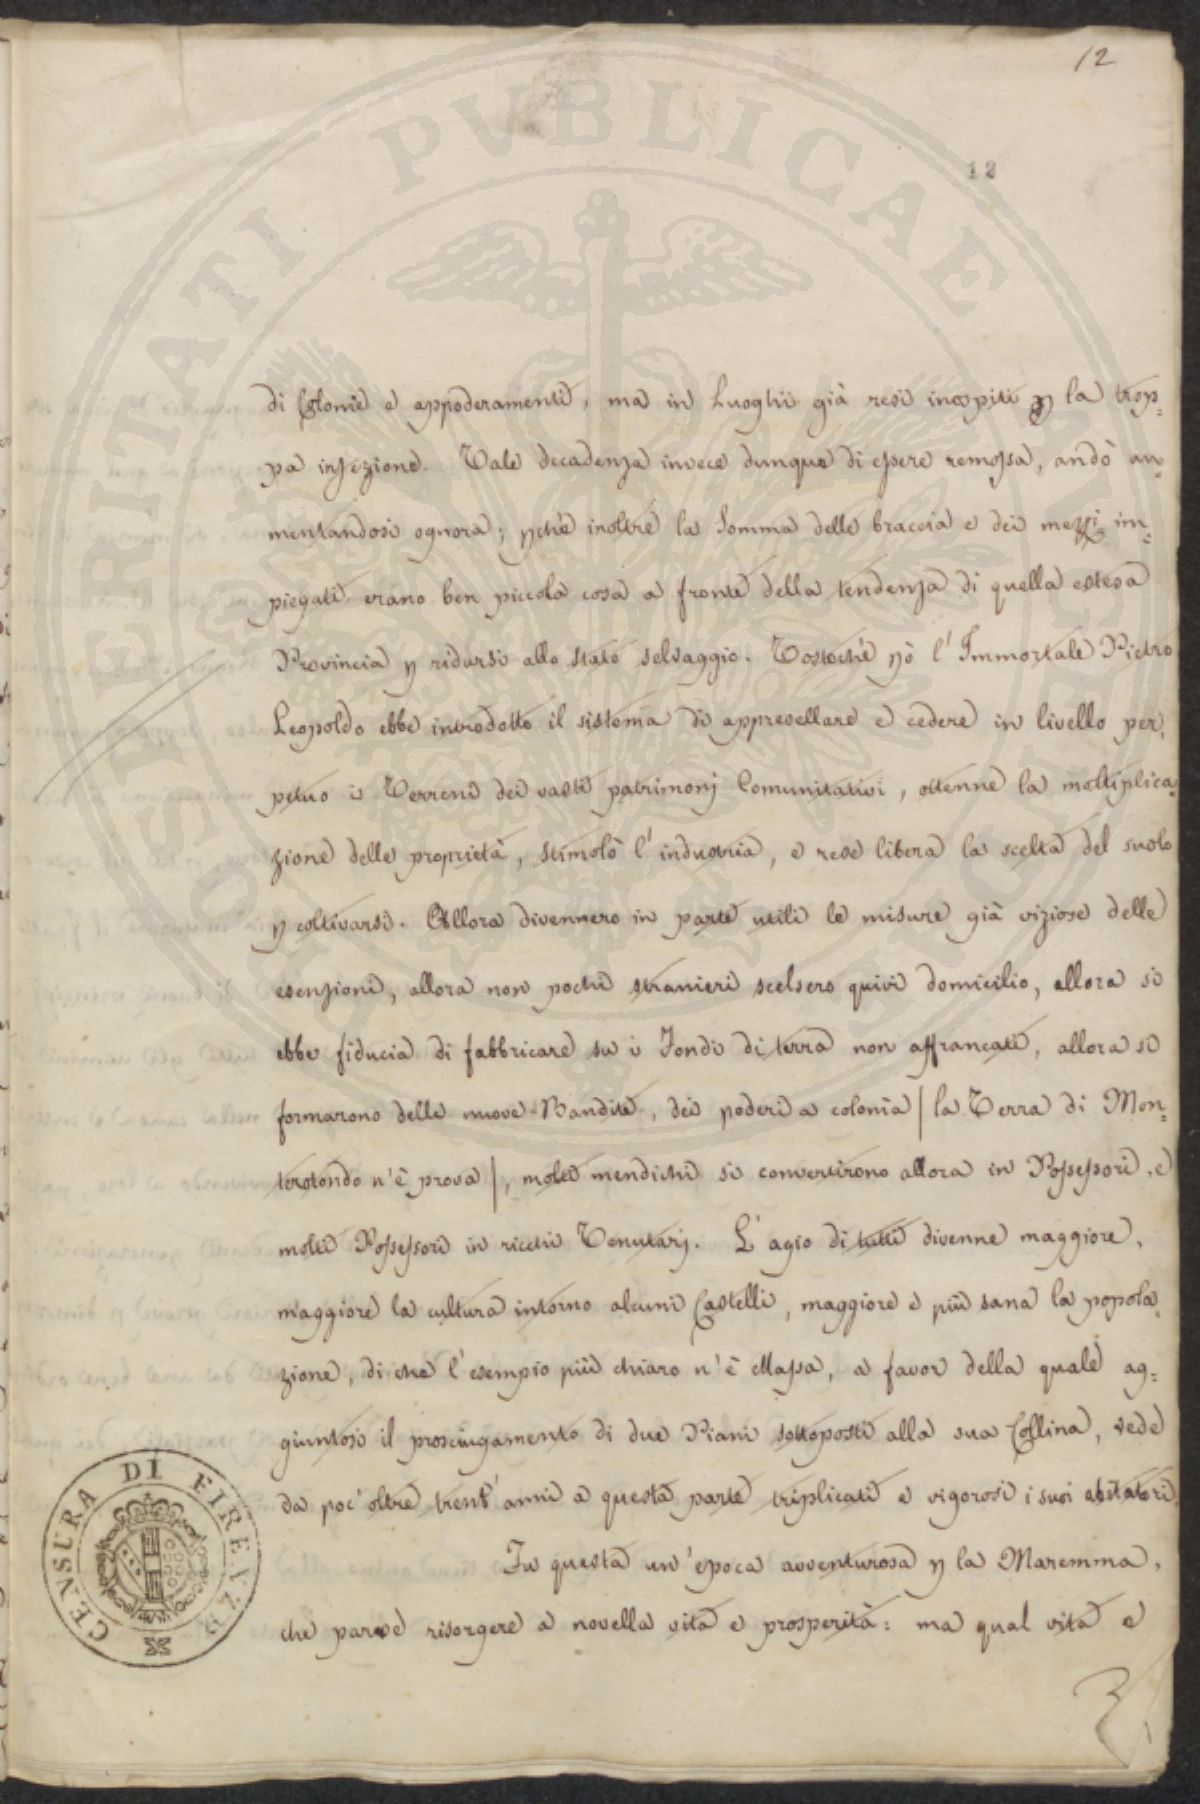 12
12
di Colonie e appoderamenti, ma in Luoghi già resi inospiti p la trop=
pa infezione. Tale decadenza invece dunque di essere remossa, andò au=
mentandosi ognora; pchè inoltre la somma delle braccia e dei mezzi im=
piegati erano ben piccola cosa a fronte della tendenza di quella estesa
Provincia p ridursi allo stato selvaggio. Tostochè pò l'Immortale Pietro
Leopoldo ebbe introdotto il sistema di appresellare e cedere in livello per=
petuo i Terreni dei vasti patrimonj Comunitativi, ottenne la moltiplica=
zione delle proprietà, stimolò l'industria, e rese libera la scelta del suolo
p coltivarsi. Allora divennero in parte utili le misure già viziose delle
esenzioni, allora non pochi stranieri scelsero quivi domicilio, allora si
ebbe fiducia di fabbricare su i Fondi di terra non affrancati, allora si
formarono delle nuove Bandite, dei poderi a colonia | la Terra di Mon=
terotondo n'è prova |, molti mendichi si convertirono allora in Possessori, e
molti Possessori in ricchi Tenutarj. L'agio di tutti divenne maggiore,
maggiore la cultura intorno alcuni Castelli, maggiore e più sana la popola=
zione, di che l'esempio più chiaro n'è Massa, a favor della quale ag=
giuntosi il prosciugamento di due Piani sottoposti alla sua Collina, vede
da poc'oltre trent'anni a questa parte triplicati e vigorosi i suoi abitatori
Fu questa un'epoca avventurosa p la Maremma,
che parve risorgere a novella vita e prosperità: ma qual vita e
CENSURA DI FIRENZE
POSTERITATI PVBLICAE